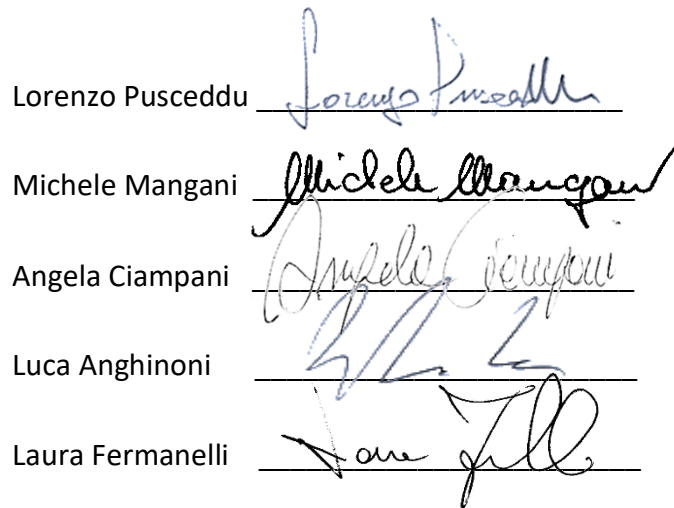 Lorenzo Pusceddu Lorenzo Pusceddu
Michele Mangani Michele Mangani
Angela Ciampani Angela Ciampani
Luca Anghinoni
Laura Fermanelli